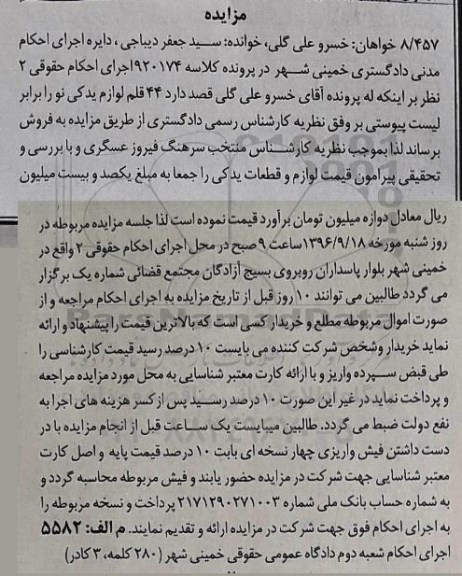 مزایده
۸/۴۵۷ خواهان: خسرو علی گلی، خوانده: سید جعفر دیباجی، دایره اجرای احکام
مدنی دادگستری خمینی شهر در پرونده کلاسه ۹۲۰۱۷۴اجرای احکام حقوقی ۲
نظر بر اینکه له پرونده آقای خسرو علی گلی قصد دارد ۴۴ قلم لوازم یدکی نو را برابر
لیست پیوستی بر وفق نظریه کارشناس رسمی دادگستری از طریق مزایده به فروش
برساند لذا بموجب نظریه کارشناس منتخب سرهنگ فیروز عسگری و با بررسی و
تحقیقی پیرامون قیمت لوازم و قطعات یدکی را جمعا به مبلغ یکصد و بیست میلیون
ریال معادل دوازه میلیون تومان برآورد قیمت نموده است لذا جلسه مزایده مربوطه در
روز شنبه مورخه ۱۳۹۶/۹/۱۸ساعت ۹ صبح در محل اجرای احکام حقوقی ۲ واقع در
خمینی شهر بلوار پاسداران روبروی بسیج آزادگان مجتمع قضائی شماره یک برگزار
می گردد طالبین می توانند ۱۰ روز قبل از تاریخ مزایده به اجرای احکام مراجعه و از
صورت اموال مربوطه مطلع و خریدار کسی است که بالاترین قیمت را پیشنهاد و ارائه
نماید خریدار وشخص شرکت کننده می بایست ۱۰ درصد رسید قیمت کارشناسی را
طی قبض سپرده واریز و با ارائه کارت معتبر شناسایی به محل مورد مزایده مراجعه
و پرداخت نماید در غیر این صورت ۱۰ درصد رسید پس از کسر هزینه های اجرا به
نفع دولت ضبط می گردد. طالبین میبایست یک ساعت قبل از انجام مزایده با در
دست داشتن فیش واریزی چهار نسخه ای بابت ۱۰ درصد قیمت پایه و اصل کارت
معتبر شناسایی جهت شرکت در مزایده حضور یابند و فیش مربوطه محاسبه گردد و
به شماره حساب بانک ملی شماره ۲۱۷۱۲۹۰۲۷۱۰۰۳ پرداخت و نسخه مربوطه را
به اجرای احکام فوق جهت شرکت در مزایده ارائه و تقدیم نمایند. م الف: ۵۵۸۲
اجرای احکام شعبه دوم دادگاه عمومی حقوقی خمینی شهر (۲۸۰ کلمه، ۳ کادر)